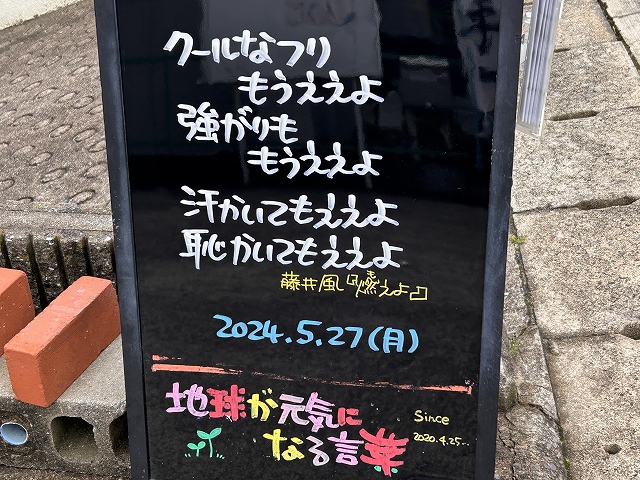 クールなフリ
もうええよ
強がりも
もうええよ
汗かいてもええよ
恥かいてもええよ
藤井風『燃えよ』
2024.5.27(月)
地球が元気に
なる言葉
Since
2020.4.25...